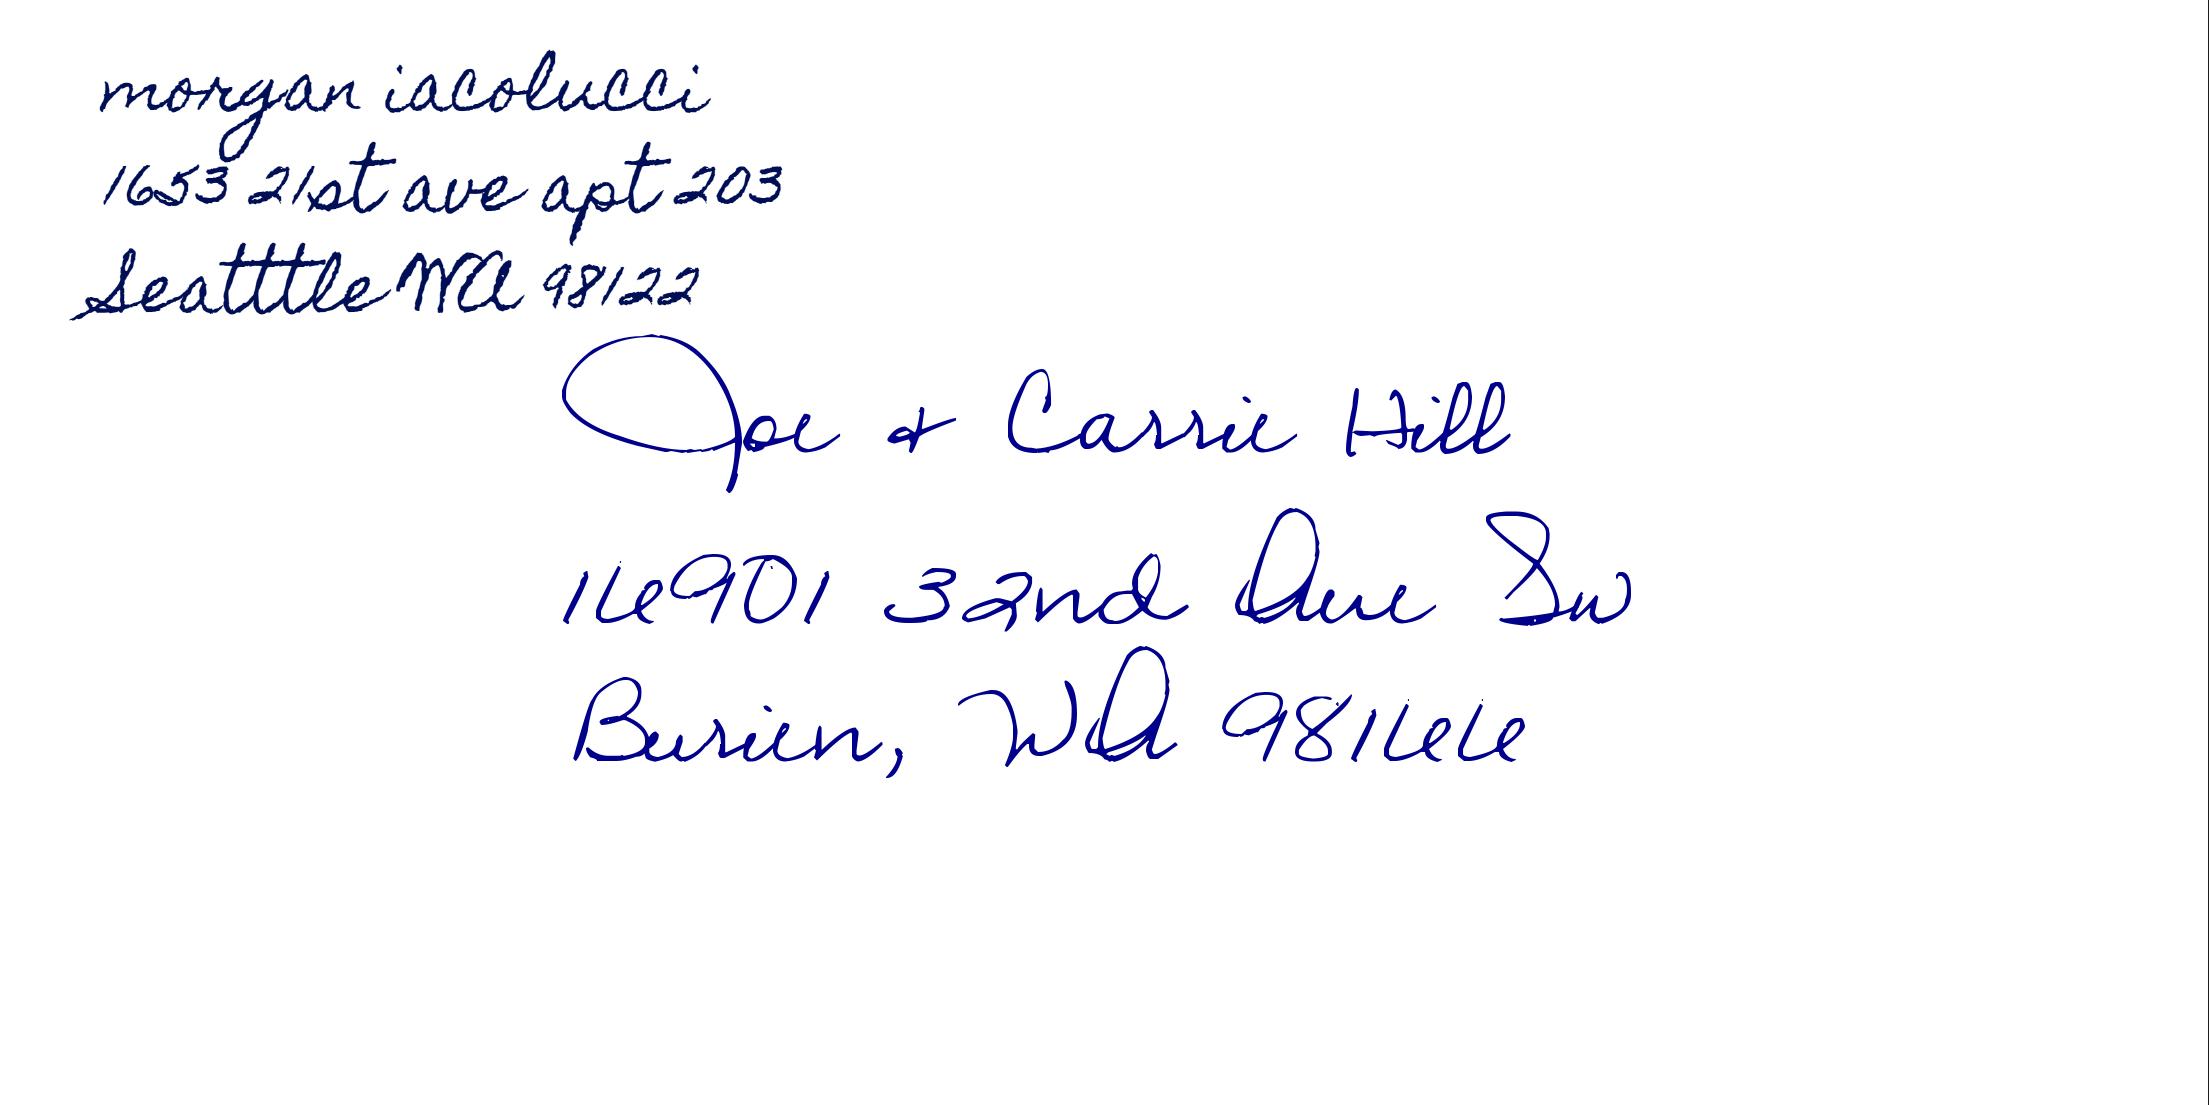 morgan iacolucci
1653 21st ave apt 203
Seatttle WA 98122
Joe & Carrie Hill
16901 32nd Ave Sw
Burien, WA 98166